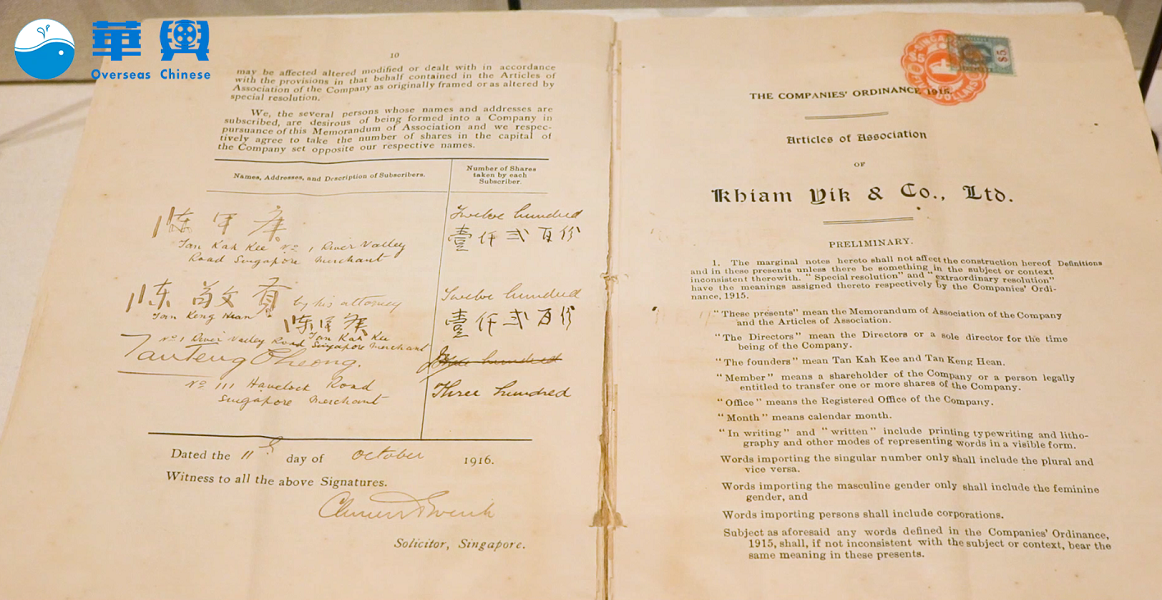 華興
Overseas Chinese
10
may be affected altered modified or dealt with in accordance
with the provisions in that behalf contained in the Articles of
Association of the Company as originally framed or as altered by
special resolution.
We, the several persons whose names and addresses are
subscribed, are desirous of being formed into a Company in
pursuance of this Memorandum of Association and we respec-
tively agree to take the number of shares in the capital of
the Company set opposite our respective names.
Names, Addresses, and Description of Subscribers.
Number of Shares
taken by each
Subscriber.
Twelve hundred
壹仟弍百份
Tan Kah Kee No 1 River Valley
Road Singapore Merchant
by his attorney
Tan Keng Hean
Tan Kah Kee
No 1 River Valley Road Singapore Merchant
Twelve hundred
壹仟弍百份
Tan Teng Cheong.
No 111 Havelock Road
Singapore Merchant
hundred
Three hundred
Dated the 11th day of October 1916.
Witness to all the above Signatures.
Solicitor, Singapore.
$5
THE COMPANIES' ORDINANCE 1915.
Articles of Association
OF
Khiam Yik & Co., Ltd.
PRELIMINARY.
1. The marginal notes hereto shall not affect the construction hereof Definitions
and in these presents unless there be something in the subject or context
inconsistent therewith. "Special resolution" and "extraordinary resolution"
have the meanings assigned thereto respectively by the Companies' Ordi-
nance, 1915.
"These presents" mean the Memorandum of Association of the Company
and the Articles of Association.
"The Directors" mean the Directors or a sole director for the time
being of the Company.
"The founders" mean Tan Kah Kee and Tan Keng Hean.
"Member" means a shareholder of the Company or a person legally
entitled to transfer one or more shares of the Company.
"Office" means the Registered Office of the Company.
"Month" means calendar month.
"In writing" and "written" include printing typewriting and litho-
graphy and other modes of representing words in a visible form.
Words importing the singular number only shall include the plural and
vice versa.
Words importing the masculine gender only shall include the feminine
gender, and
Words importing persons shall include corporations.
Subject as aforesaid any words defined in the Companies' Ordinance,
1915, shall, if not inconsistent with the subject or context, bear the
same meaning in these presents.